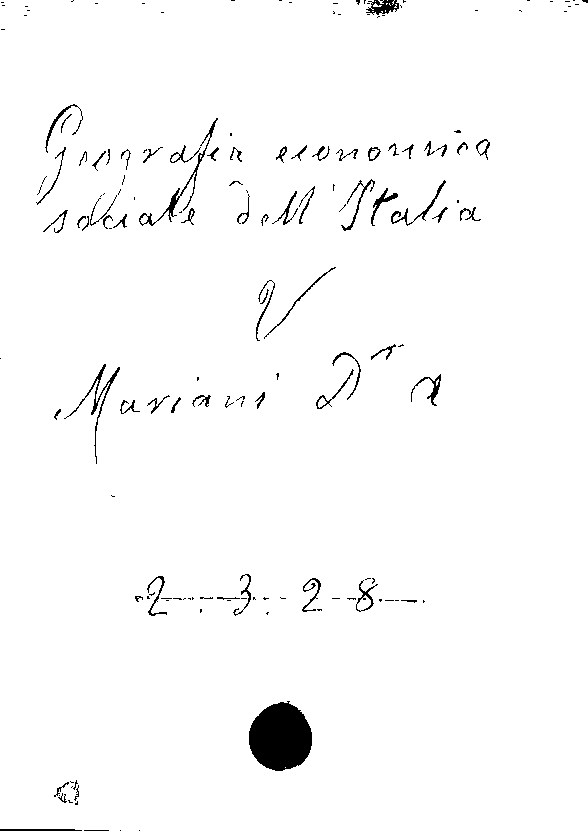 Geografia economica
sociale dell'Italia
V
Mariani Dr
2.3.28